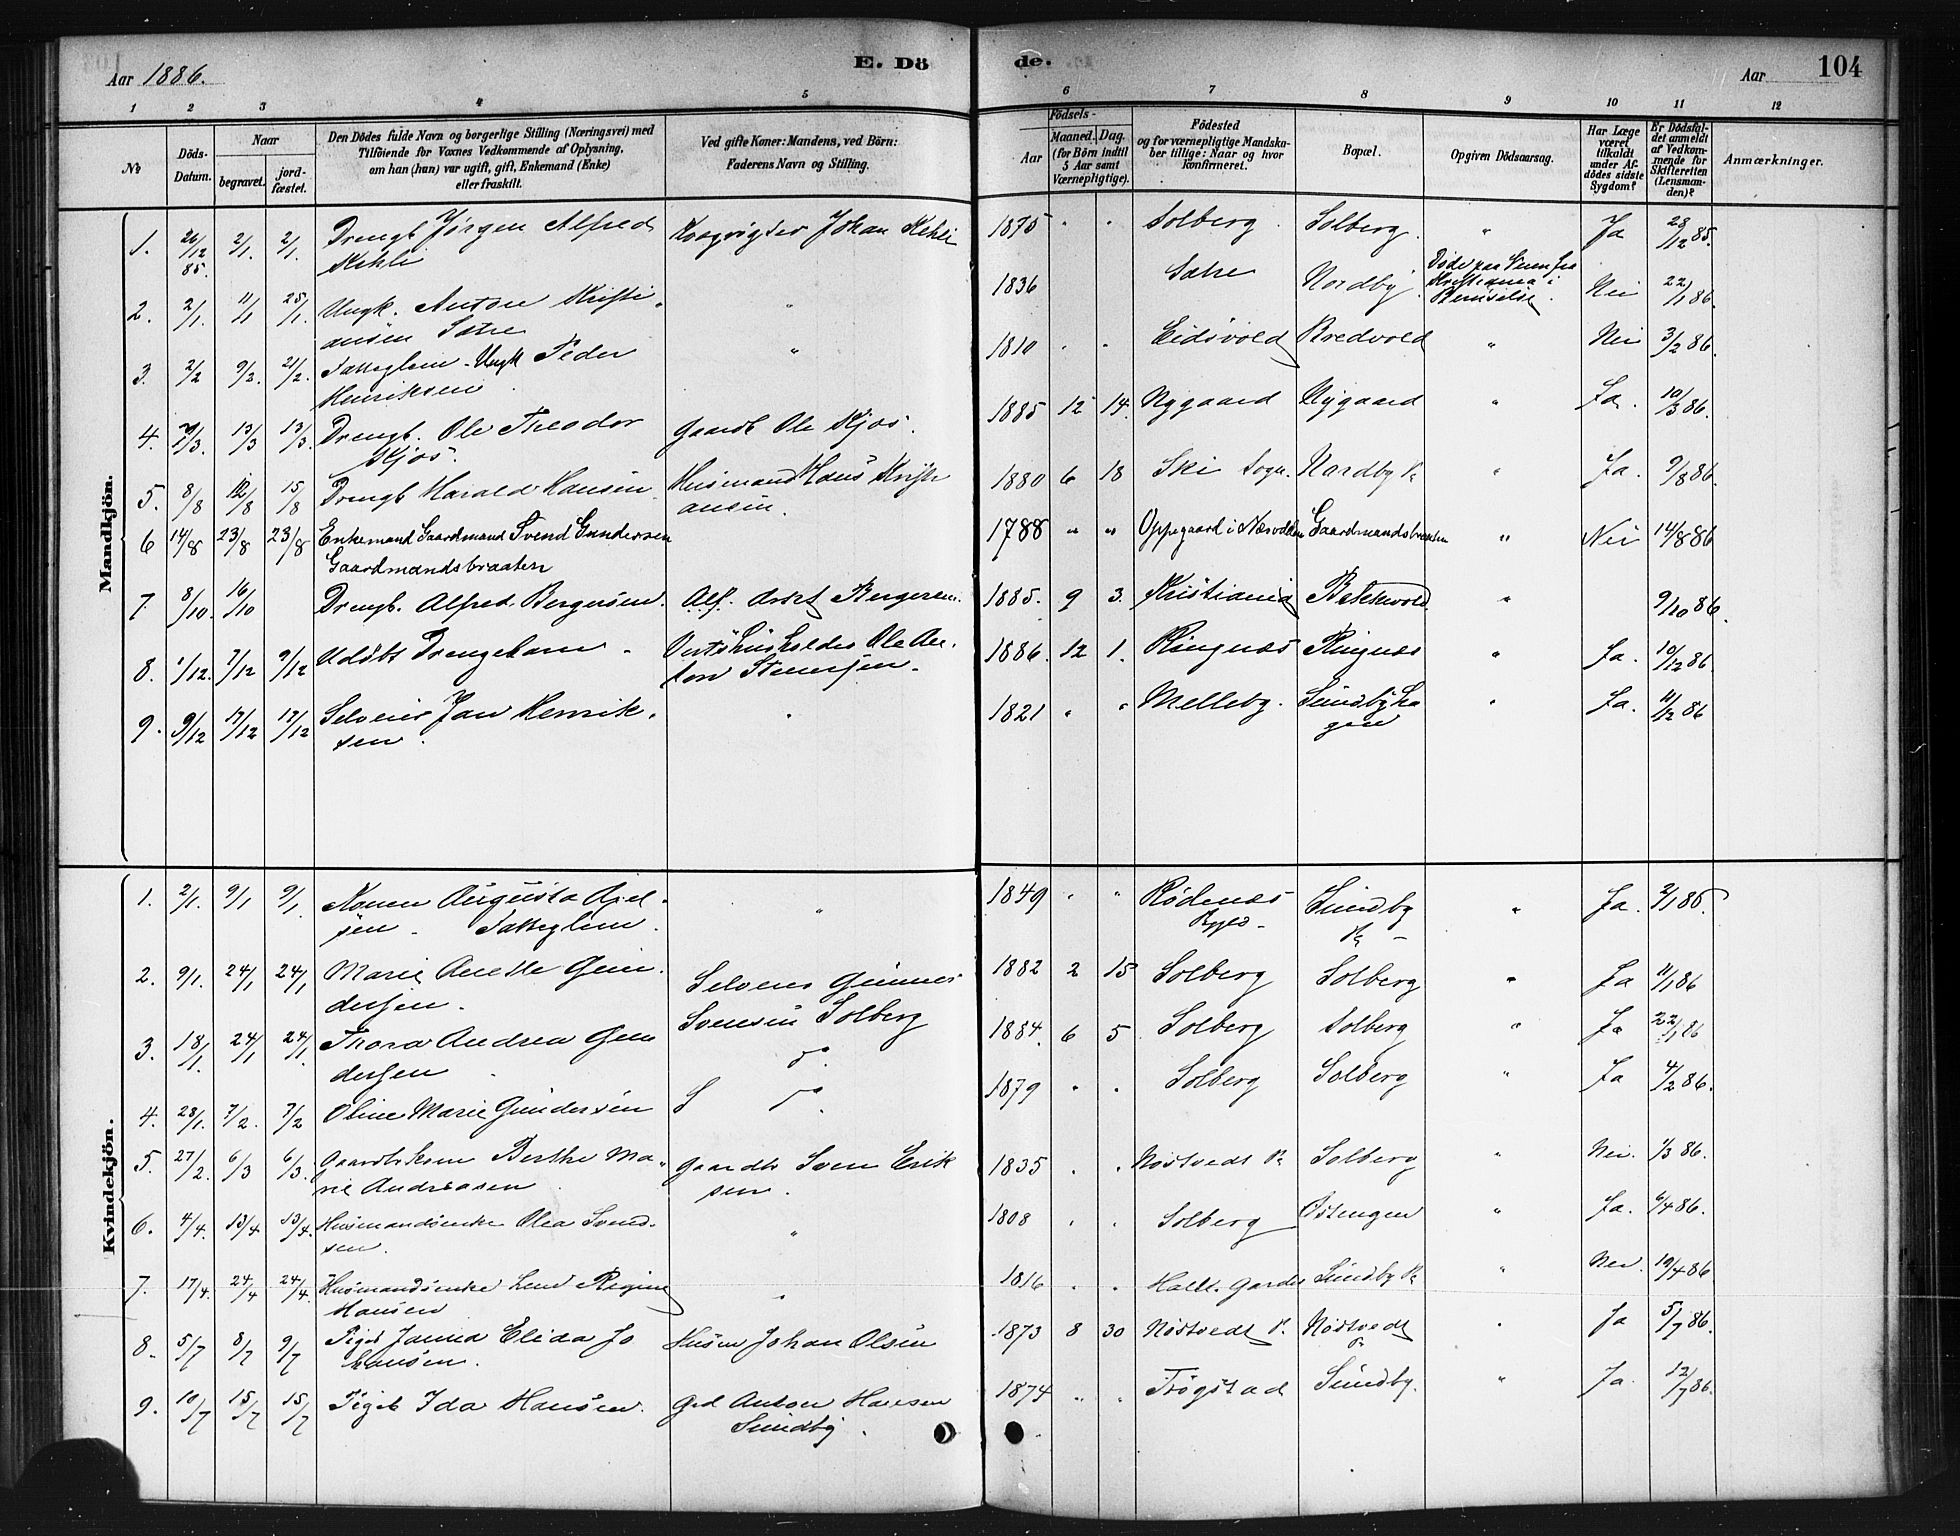 Aar 1886.
E. Dö
de.
Aar
104
1 2 3 4 5
6 7 8 9 10 11 12
No
Döds-Datum.
Naar
begravet.
jord-fæstet.
Den Dödes fulde Navn og borgerlige Stilling (Næringsvei) med
Tilföiende for Voxnes Vedkommende af Oplysning,
om han (hun) var ugift, gift, Enkemand (Enke)
eller fraskilt.
Ved gifte Koner: Mandens, ved Börn:
Faderens Navn og Stilling.
Födsels-
Aar
Maaned. Dag.
(for Börn indtil
5 Aar samt
Værnepligtige).
Födested
og for værnepligtige Mandska-
ber tillige: Naar og hvor
konfirmeret.
Bopæl.
Opgiven Dödsaarsag.
Har Læge
været
tilkaldt
under Af-
dödes sidste
Sygdom?
Er Dödsfal-
det anmeldt
af Vedkom-
mende for
Skifteretten
(Lensman-
den)?
Anmærkninger.
Mandkjön.
1. 26/12 85. 2/1. 2/1. Drengb Jørgen Alfred Johan 1875 " " Solberg. Solberg. " Ja 28/12 85.
2. 2/1. 11/1 25/1. Ungk. Anton Kristi-
ansen Sætre " 1836 Sætre Nordby. Døde paa Veien fra
Kristiania i
Beruselse. Nei 22/1 86.
3. 2/2 9/2. 21/2. Fattiglem. Ungk Peder
Henriksen " 1810 " " Eidsvold Bredvold " Nei 3/2 86.
4. 7/3. 13/3 13/3. Drengb. Ole Theodor
Kjos. Gaardb Ole Kjos. 1885 12 14. Nygaard Nygaard " Ja. 10/3 86.
5. 8/8 12/8 15/8 Drengb Harald Hansen Husmand Hans Kristi
ansen. 1880 6 18 Ski Sogn. Nordby Pl " Ja. 9/8 86.
6 14/8 23/8 23/8 Enkemand Gaardmand Svend Gundersen
Gaardmandsbraaten 1788 " " Oppegaard i Næsodden Gaardmandsbraaten " Nei 14/8 86
7. 8/10. 16/10 Drengb. Alfred Bergersen. Bergersen. 1885. 9 3. Kristiania " 9/10 86.
8. 1/12. 7/12 9/12 Udöbt Drengebarn. Vertshusholder Ole An-
ton Steensen. 1886. 12 1. Ringnæs Ringnæs " Ja. 10/12 86.
9. 9/12 17/12 17/12 Selveier Jan Henrik-
sen. " 1821 " " Melleby. Sundbyha
gen " Ja. 11/12 86
Kvindekjön.
1. 2/1. 9/1 9/1. Augusta Axel-
sen. Fattiglem. " 1849 " " Rödenæs
Sundby
Pl " Ja. 3/1 86.
2. 9/1. 24/1 24/1 Marie Anette Gun-
dersen. Selveier Gunnar
Svensen Solberg 1882 2 15 Solberg Solberg " Ja 11/1 86
3. 18/1. 24/1 24/1. Thora Andrea Gun
dersen. do. 1884. 6 5 Solberg Solberg " Ja 22/1 86
4. 28/1. 7/2. 7/2 Oline Marie Gundersen S do. 1879 " " Solberg Solberg " Ja 4/2 86.
5. 27/2. 6/3 6/3. Gaardbrkone Berthe Ma-
rie Andreasen. Gaardbr Sven Erik
sen. 1835 " " Nöstvedt Pl Solberg " Nei. 1/3 86.
6. 4/4. 13/4 13/4. Husmandsenke Olea Svend-
sen. " 1808 " " Solberg Östengen " Ja. 6/4 86.
7. 17/4. 24/4 24/4. Husmandsenke Regine
Hansen " 1816 " " Sundby Pl " Nei. 19/4 86
8. 5/7 8/7 9/7 Pigeb Janna Elida Jo
hansen. Husm Johan Olsen 1873 8 30 Nöstvedt P. Nöstvedt
P " Ja 5/7 86.
9. 10/7 15/7 15/7 Pigeb Ida Hansen. Gbd Anton Hansen
Sundby. 1874 " " Trögstad Sundby. " Ja. 12/7 86.